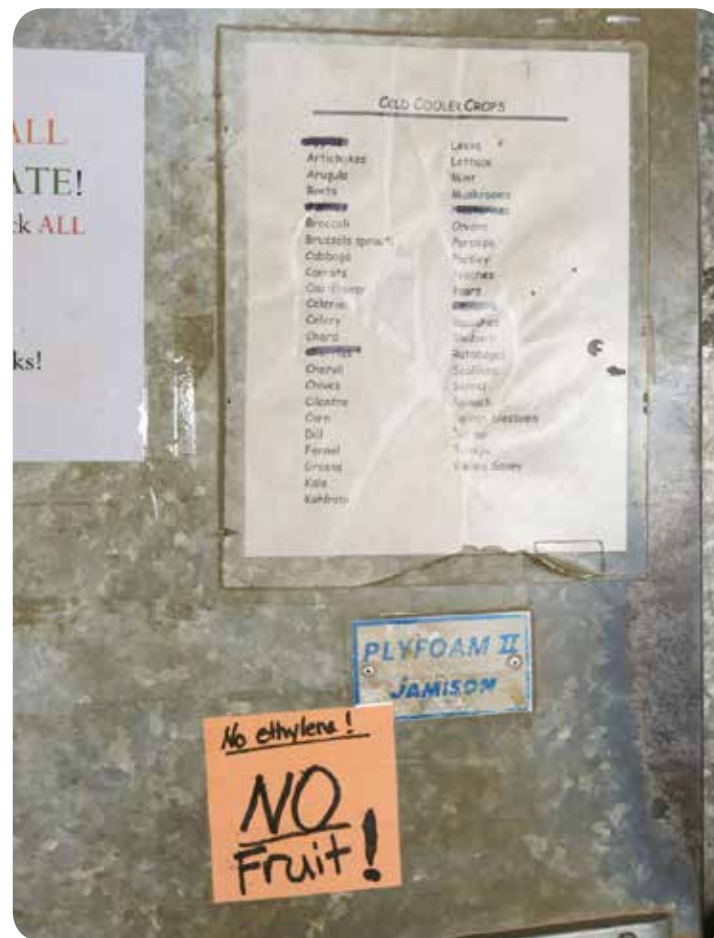 ALL
ATE!
ck ALL
ks!
COLD COOLER CROPS
Artichokes
Arugula
Beets
Broccoli
Brussels sprouts
Cabbage
Carrots
Cauliflower
Celeriac
Celery
Chard
Chervil
Chives
Cilantro
Corn
Dill
Fennel
Greens
Kale
Kohlrabi
Leeks
Lettuce
Mint
Mushrooms
Onions
Parsnips
Parsley
Peaches
Pears
Radishes
Rhubarb
Rutabagas
Scallions
Sorrel
Spinach
Turnips
Savoy
PLYFOAM II
JAMISON
No ethylene!
NO
Fruit!